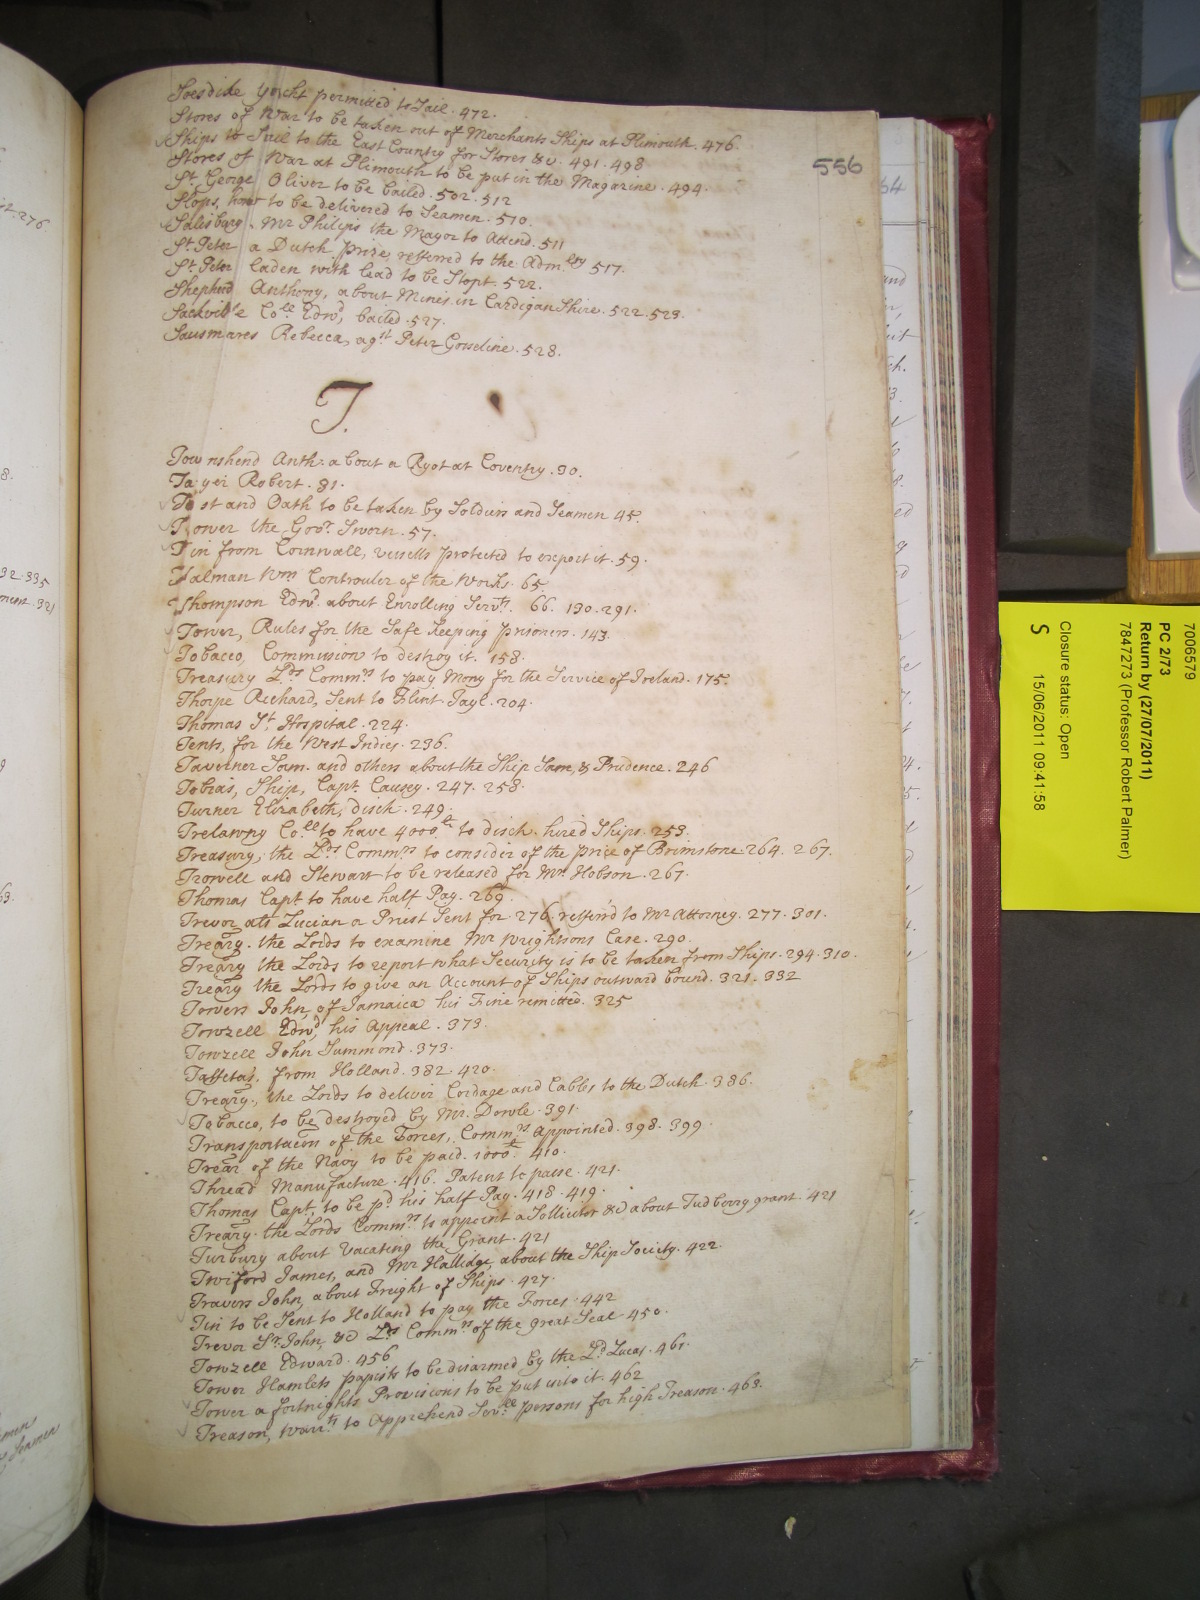 Soesdike Yacht permitted to Sail. 472.
Stores of War to be taken out of Merchants Ships at Plimouth. 476.
Ships to Sail to the East Country for Stores &c. 491. 498
Stores of War at Plimouth to be put in the Magazine. 494.
St. George Oliver to be bailed. 502. 512
Slops, how to be delivered to Seamen. 510.
Salisbury. Mr Philips the Mayor to Attend. 511
St. Peter a Dutch Prize, referred to the Admlty 517.
St. Peter laden with lead to be Stopt. 522.
Shepherd Anthony, about Mines in CardiganShire. 522. 523.
Sackville Coll. Edwd, bailed. 527.
Sausmares Rebecca, agst Peter Gosseline. 528.
556
T.
Townshend Anth: about a Ryot at Coventry. 30.
Robert. 31.
Test and Oath to be taken by Soldiers and Seamen 45.
Tower the Govr. Sworn. 57.
Tin from Cornwall, vessells protected to export it. 59.
Talman Wm Controuler of the Works. 65.
Thompson Edwd. about Enrolling Servts. 66. 130. 291.
Tower, Rules for the Safe Keeping Prisoners. 143.
Tobacco, Commission to destroy it. 158.
Treasury Lds Commrs to pay Mony for the Service of Ireland. 175.
Thorpe Richard, Sent to Flint Jayl. 204.
Thomas St. Hospital. 224.
Tents, for the West Indies. 236.
Taverner Sam. and others about the Ship Sam, & Prudence. 246
Tobias, Ship, Capt. Causey. 247. 258.
Turner Elizabeth, disch. 249.
Trelawny Coll. to have 4000£ to disch. hired Ships. 253.
Treasury, the Lds Commrs to consider of the price of Brimstone. 264. 267.
Trowell and Stewart to be released for Mr. Hobson. 267.
Thomas Capt. to have half Pay. 269
Trevor als Lucian a Priest Sent for 276. referr'd to Mr Attorney. 277. 301.
Treary. the Lords to examine Mr Wrightsons Case. 290.
Treary the Lords to report what Security is to be taken from Ships. 294. 310.
Treary the Lords to give an Account of Ships outward bound. 321. 332
Towers John, of Jamaica his Fine remitted. 325
Towzell Edwd, his Appeal. 373.
Towzell John Summond. 373.
Taffeta's. from Holland. 382. 420.
Treary., the Lords to deliver Cordage and Cables to the Dutch. 386.
Tobacco, to be destroyed by Mr. Dowle. 391.
Transportacon of the Forces, Commrs Appointed. 398. 399.
Trear. of the Navy to be paid. 1000£. 410.
Thread Manufacture. 416. Patent to passe. 421.
Thomas Capt, to be pd his half Pay. 418. 419.
Treary. the Lords Commrs to appoint a Sollicitor &c about Tudberry grant. 421
Turbury about vacating the Grant. 421
Twiford James, and Mr Hallidge, about the Ship Society. 422.
Travers John, about Freight of Ships. 427.
Tin to be Sent to Holland to pay the Forces. 442
Trevor Sr. John, &c Lds Commrs of the great Seal 450.
Towzell Edward. 456
Tower Hamlets papists to be disarmed by the Ld. Lucas. 461.
Tower a fortnights Provisions to be put into it. 462
Treason, Warrts to Apprehend Sevll persons for high Treason. 463.
7006579
PC 2/73
Return by (27/07/2011)
7847273 (Professor Robert Palmer)
Closure status: Open
S 15/06/2011 09:41:58